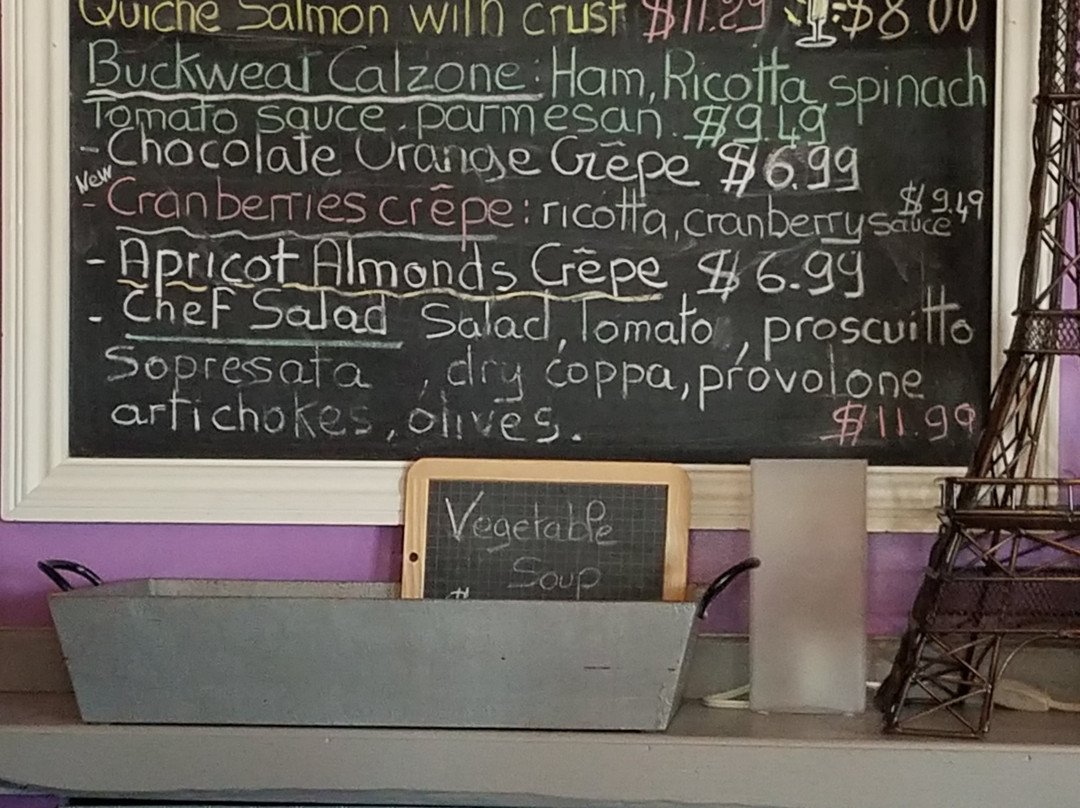 Quiche Salmon with crust $11.29 $8.00
Buckweat Calzone: Ham, Ricotta, spinach
Tomato sauce, parmesan. $9.49
- Chocolate Orange Crêpe $6.99
New
- Cranberries crêpe: ricotta, cranberry sauce $9.49
- Apricot Almonds Crêpe $6.99
- Chef Salad Salad, Tomato, proscuitto
Sopresata, dry coppa, provolone
artichokes, olives. $11.99
Vegetable
Soup
$